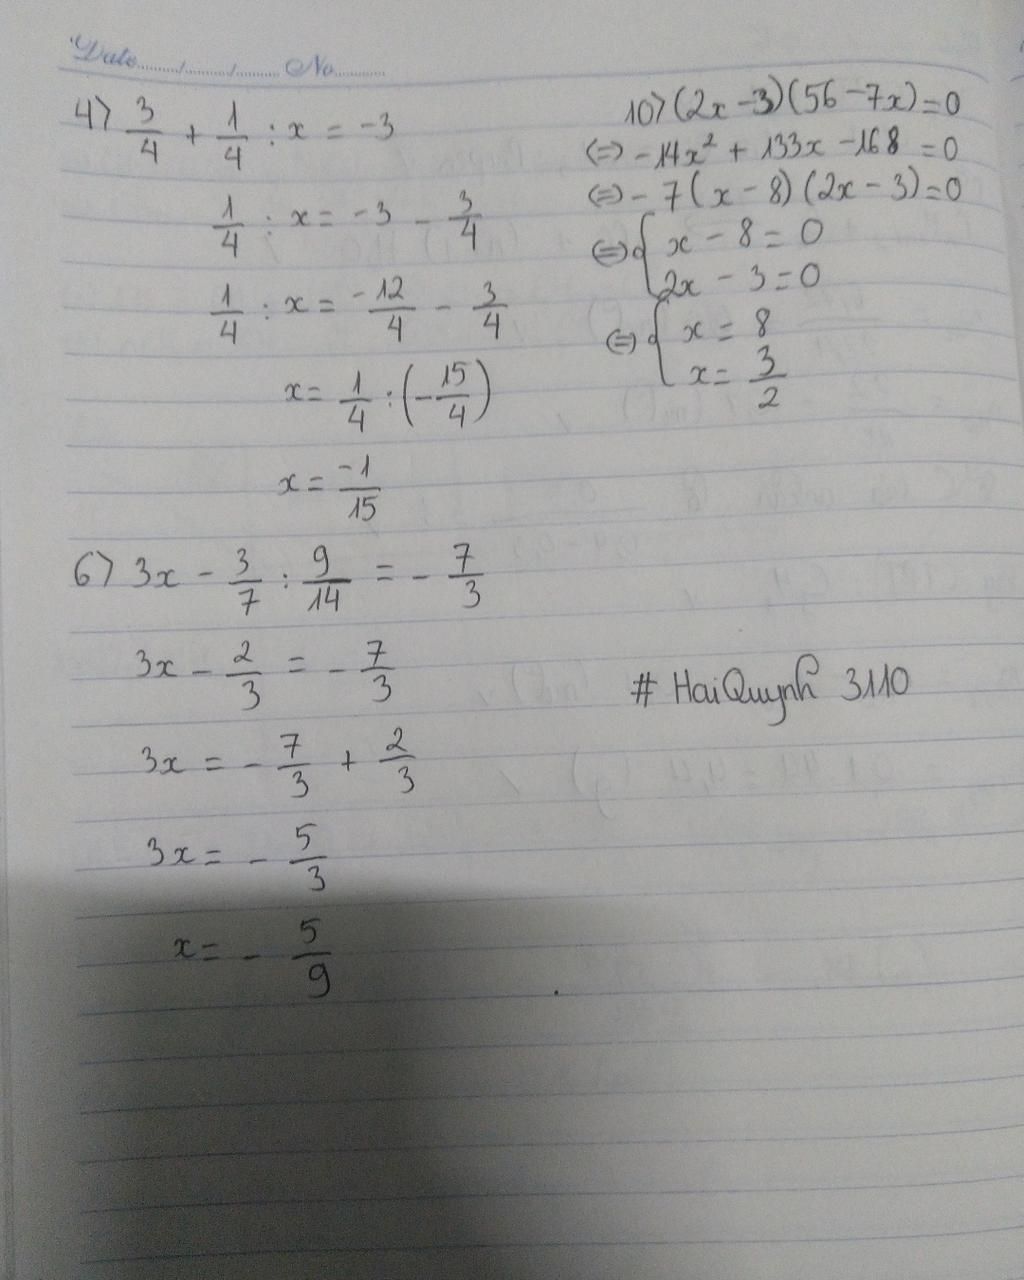 Date......./......./....... No..........
4) 3/4 + 1/4 : x = -3
1/4 : x = -3 - 3/4
1/4 : x = -12/4 - 3/4
x = 1/4 : (-15/4)
x = -1/15
6) 3x - 3/7 : 9/14 = - 7/3
3x - 2/3 = - 7/3
3x = - 7/3 + 2/3
3x = - 5/3
x = - 5/9
10) (2x - 3)(56 - 7x) = 0
(=) -14x² + 133x - 168 = 0
(=) - 7(x - 8)(2x - 3) = 0
(=) { x - 8 = 0
2x - 3 = 0
(=) { x = 8
x = 3/2
# HaiQuynh 3110